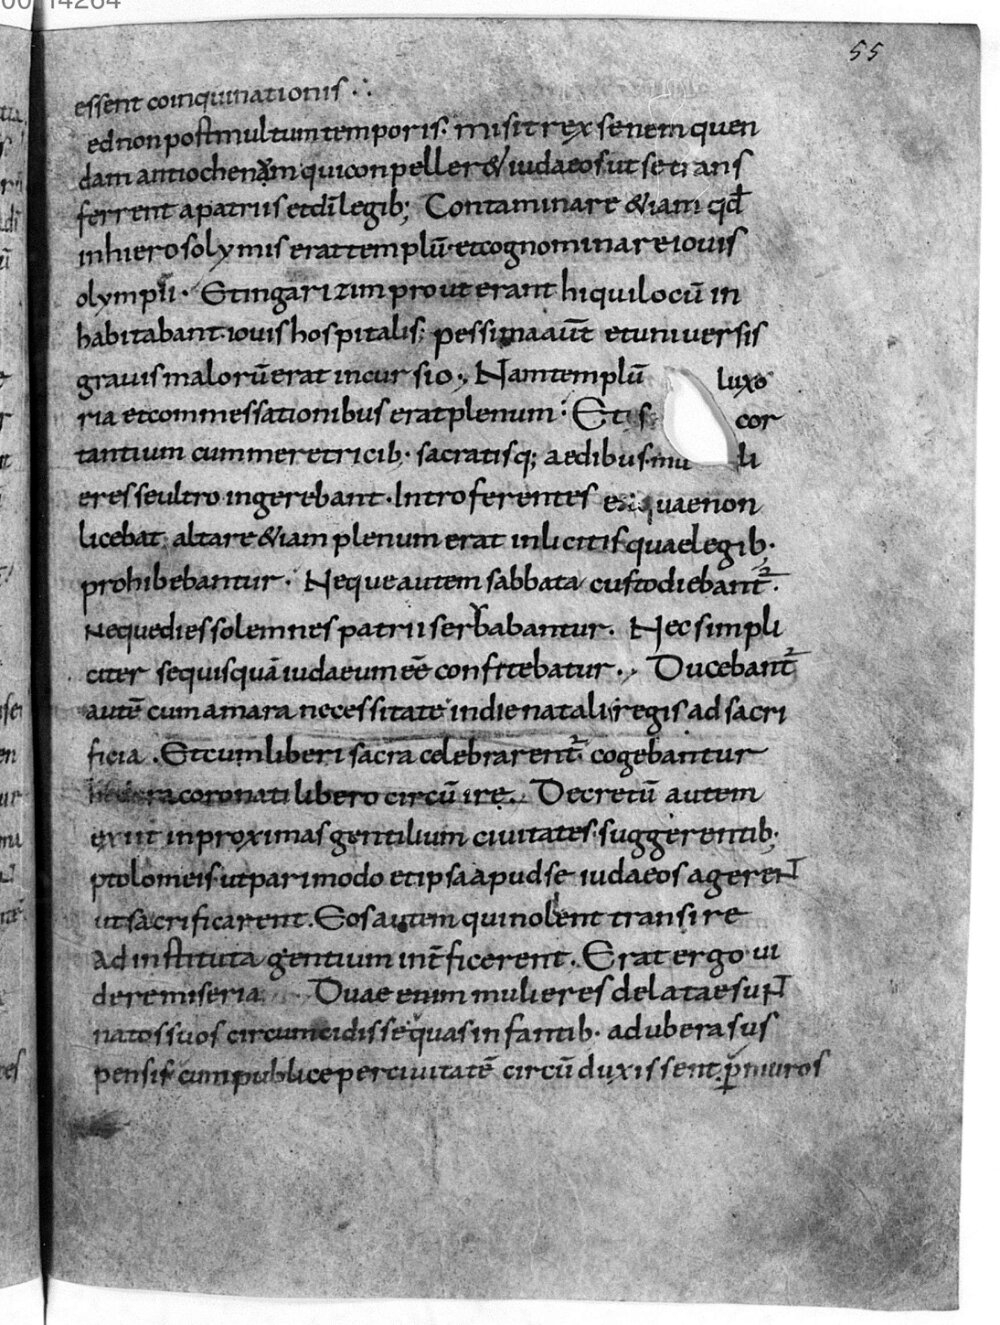 00 14264
55
essent coinquinationis ∴
ed non post multum temporis. misit rex senem quen
dam antiochenum qui conpeller& iudaeos ut se trans
ferrent a patriis et dī legib; Contaminare &iam qđ
in hierosolymis erat templū. et cognominare iouis
olympii. Et in garizim prout erant hi qui locū in
habitabant. iouis hospitalis; pessima aūt et uniuersis
grauis malorū erat incursio., Nam templū luxo
ria et commessationibus erat plenum. Et s cor
tantium cum meretricib. sacratisq; aedibus. mu li
eres se ultro ingerebant. Intro ferentes ea quae non
licebat. altare &iam plenum erat inlicitis quae legib.
prohibebantur. Neque autem sabbata custodiebant̄.
Neque dies solemnes patrii serbabantur. Nec simpli
citer se quisquā iudaeum eē confitebatur., Ducebant̄
autē cum amara necessitate in die natali regis ad sacri
ficia. Et cum liberi sacra celebrarent̄ cogebantur
hedera coronati libero circū ire. Decretū autem
exiit in proximas gentilium ciuitates. suggerentib;
ptolomeis. ut pari modo et ipsa apud se iudaeos agerent
ut sacrificarent. Eos autem qui nolent transire
Ad instituta gentium int̄ficerent. Erat ergo ui
dere miseria. Duae enim mulieres delatae sunt
natos suos circumcidisse quas infantib. ad ubera sus
pensis cum publice per ciuitatē circū duxissent. p̄ muros